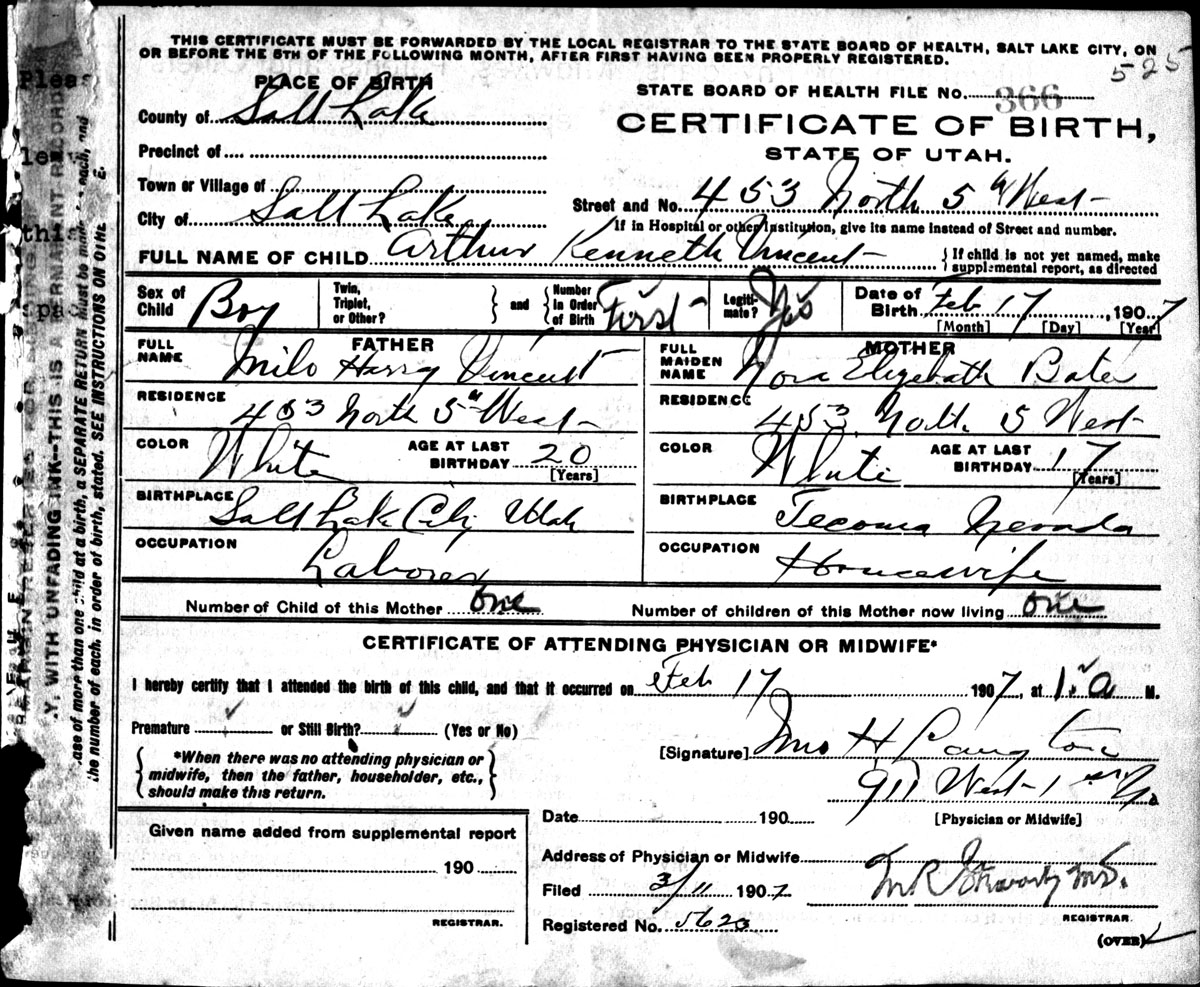 THIS CERTIFICATE MUST BE FORWARDED BY THE LOCAL REGISTRAR TO THE STATE BOARD OF HEALTH, SALT LAKE CITY, ON
OR BEFORE THE 5TH OF THE FOLLOWING MONTH, AFTER FIRST HAVING BEEN PROPERLY REGISTERED.
525
PLACE OF BIRTH
STATE BOARD OF HEALTH FILE NO. 366
County of Salt Lake
CERTIFICATE OF BIRTH,
Precinct of
STATE OF UTAH.
Town or Village of
Street and No. 453 North 5th West
City of Salt Lake
If in Hospital or other Institution, give its name instead of Street and number.
FULL NAME OF CHILD Arthur Kenneth Vincent
If child is not yet named, make
supplemental report, as directed
Sex of Child Boy
Twin, Triplet, or Other?
and
Number in Order of Birth First
Legiti-mate? Yes
Date of Birth Feb 17, 1907
[Month] [Day] [Year]
FATHER
FULL NAME Milo Harry Vincent
RESIDENCE 453 North 5th West
COLOR White
AGE AT LAST BIRTHDAY 20
[Years]
BIRTHPLACE Salt Lake City Utah
OCCUPATION Laborer
MOTHER
FULL MAIDEN NAME Nora Elizebath Bates
RESIDENCE 453 North 5 West
COLOR White
AGE AT LAST BIRTHDAY 17
[Years]
BIRTHPLACE Tecoma Nevada
OCCUPATION Housewife
Number of Child of this Mother One
Number of children of this Mother now living One
CERTIFICATE OF ATTENDING PHYSICIAN OR MIDWIFE*
I hereby certify that I attended the birth of this child, and that it occurred on Feb 17 1907, at 1. a M.
Premature or Still Birth? (Yes or No)
*When there was no attending physician or
midwife, then the father, householder, etc.,
should make this return.
[Signature] H
911 West 1st No
Date 190
[Physician or Midwife]
Given name added from supplemental report
190
REGISTRAR.
Address of Physician or Midwife
Filed 3/11 1907
REGISTRAR.
Registered No. 5623
(OVER)